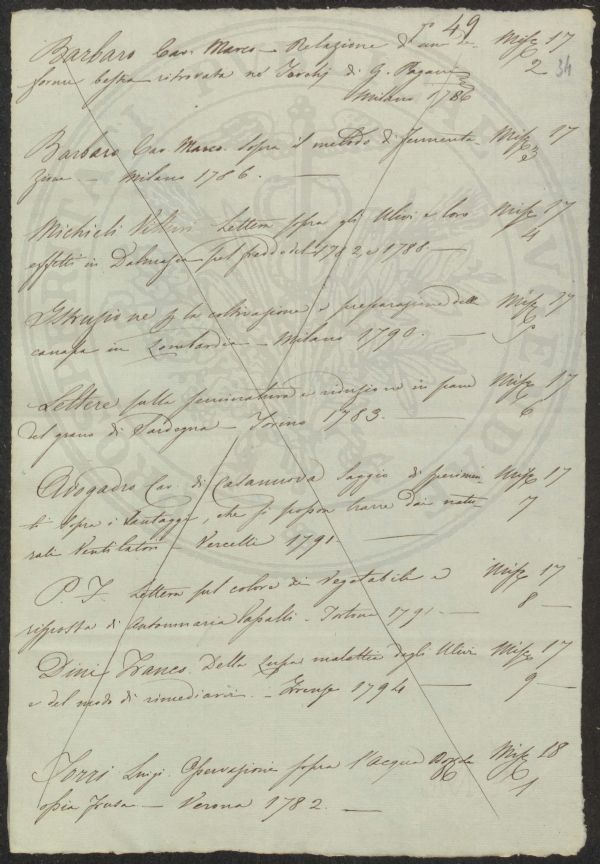 49
34
Barbaro Cav. Marco - Relazione d'un de- Misc. 17
forme bestia ritrovata ne' Torchj di G. Pagani 2
Milano 1786
Barbaro Cav. Marco. Sopra il metodo di fermenta- Misc. 17
zione - Milano 1786. - 3
Michieli Vitturi Lettera sopra gli Ulivi e loro Misc. 17
effetti in Dalmazia pel freddo del 1782, e 1788 - 4
Istruzione p la coltivazione e preparazione della Misc. 17
canapa in Lombardia - Milano 1790. - 5
Lettere sulla seminatura e riduzione in pane Misc. 17
del grano di Sardegna - Torino 1783. - 6
Avogadro Cav. di Casanuova Saggio di sperimen Misc. 17
ti sopra i vantaggi, che si posson trarre dai natu 7
rali Ventilatori - Vercelli 1791.
P. T. Lettera sul colore dei Vegetabili e Misc. 17
risposta di Antonmaria - Tortona 1791 - 8 -
Dini Franco. Della Lupa malattia degli Ulivi Misc. 17
e del modo di rimediarvi. - Firenze 1794 - 9 -
Torri Luigi. Osservazioni sopra l'Acqua Misc. 18
ossia - Verona 1782. - 1